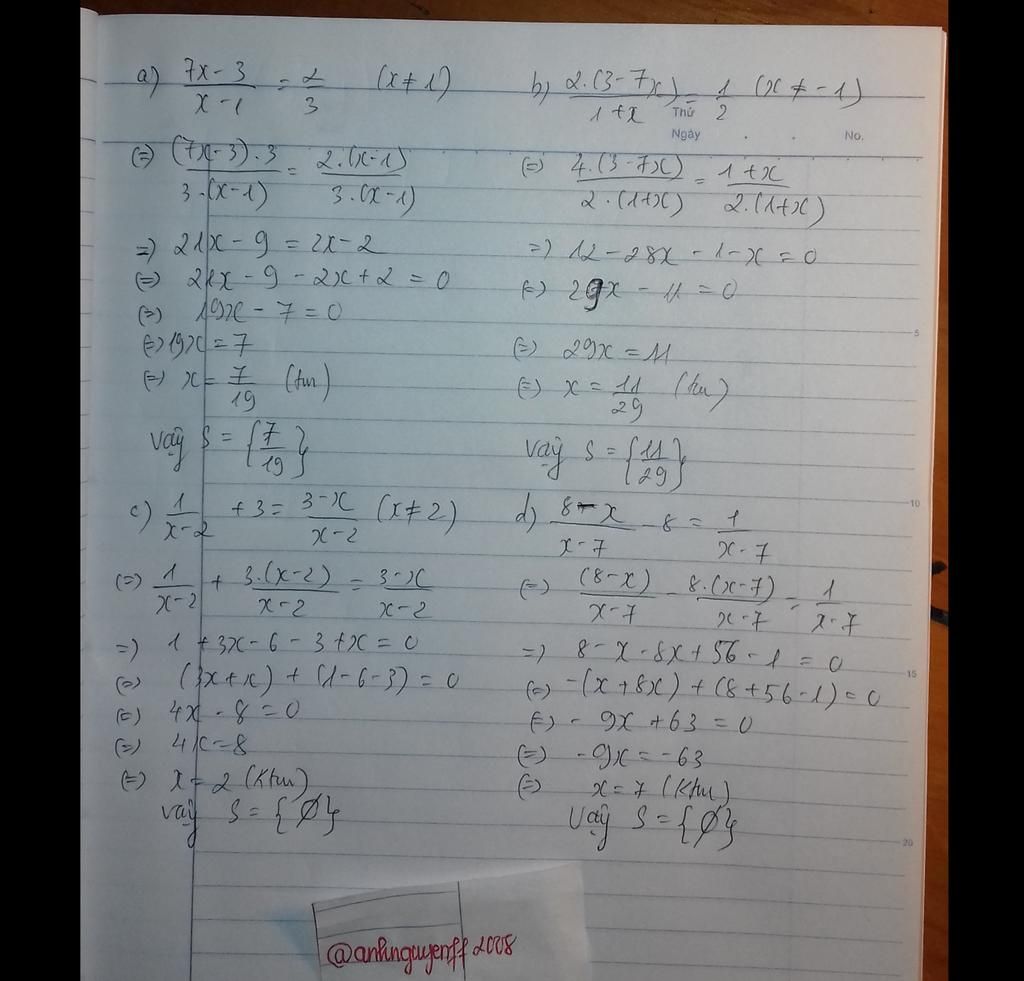 a) \frac{7x-3}{x-1} = \frac{2}{3} (x ≠ 1)
(=) \frac{(7x-3).3}{3.(x-1)} = \frac{2.(x-1)}{3.(x-1)}
=) 21x - 9 = 2x - 2
(=) 21x - 9 - 2x + 2 = 0
(=) 19x - 7 = 0
(=) 19x = 7
(=) x = \frac{7}{19} (tm)
Vậy S = {\frac{7}{19}}
b) \frac{2.(3-7x)}{1+x} = \frac{1}{2} (x ≠ -1)
Thứ
Ngày . . No.
(=) \frac{4.(3-7x)}{2.(1+x)} = \frac{1+x}{2.(1+x)}
=) 12 - 28x - 1 - x = 0
(=) 29x - 11 = 0
(=) 29x = 11
(=) x = \frac{11}{29} (tm)
Vậy S = {\frac{11}{29}}
c) \frac{1}{x-2} + 3 = \frac{3-x}{x-2} (x ≠ 2)
(=) \frac{1}{x-2} + \frac{3.(x-2)}{x-2} = \frac{3-x}{x-2}
=) 1 + 3x - 6 - 3 + x = 0
(=) (3x + x) + (1 - 6 - 3) = 0
(=) 4x - 8 = 0
(=) 4x = 8
(=) x = 2 (Ktm)
Vậy S = {∅}
d) \frac{8-x}{x-7} - 8 = \frac{1}{x-7}
(=) \frac{(8-x)}{x-7} - \frac{8.(x-7)}{x-7} = \frac{1}{x-7}
=) 8 - x - 8x + 56 - 1 = 0
(=) -(x + 8x) + (8 + 56 - 1) = 0
(=) - 9x + 63 = 0
(=) -9x = -63
(=) x = 7 (Ktm)
Vậy S = {∅}
5
10
15
20
@anhnguyenff2008